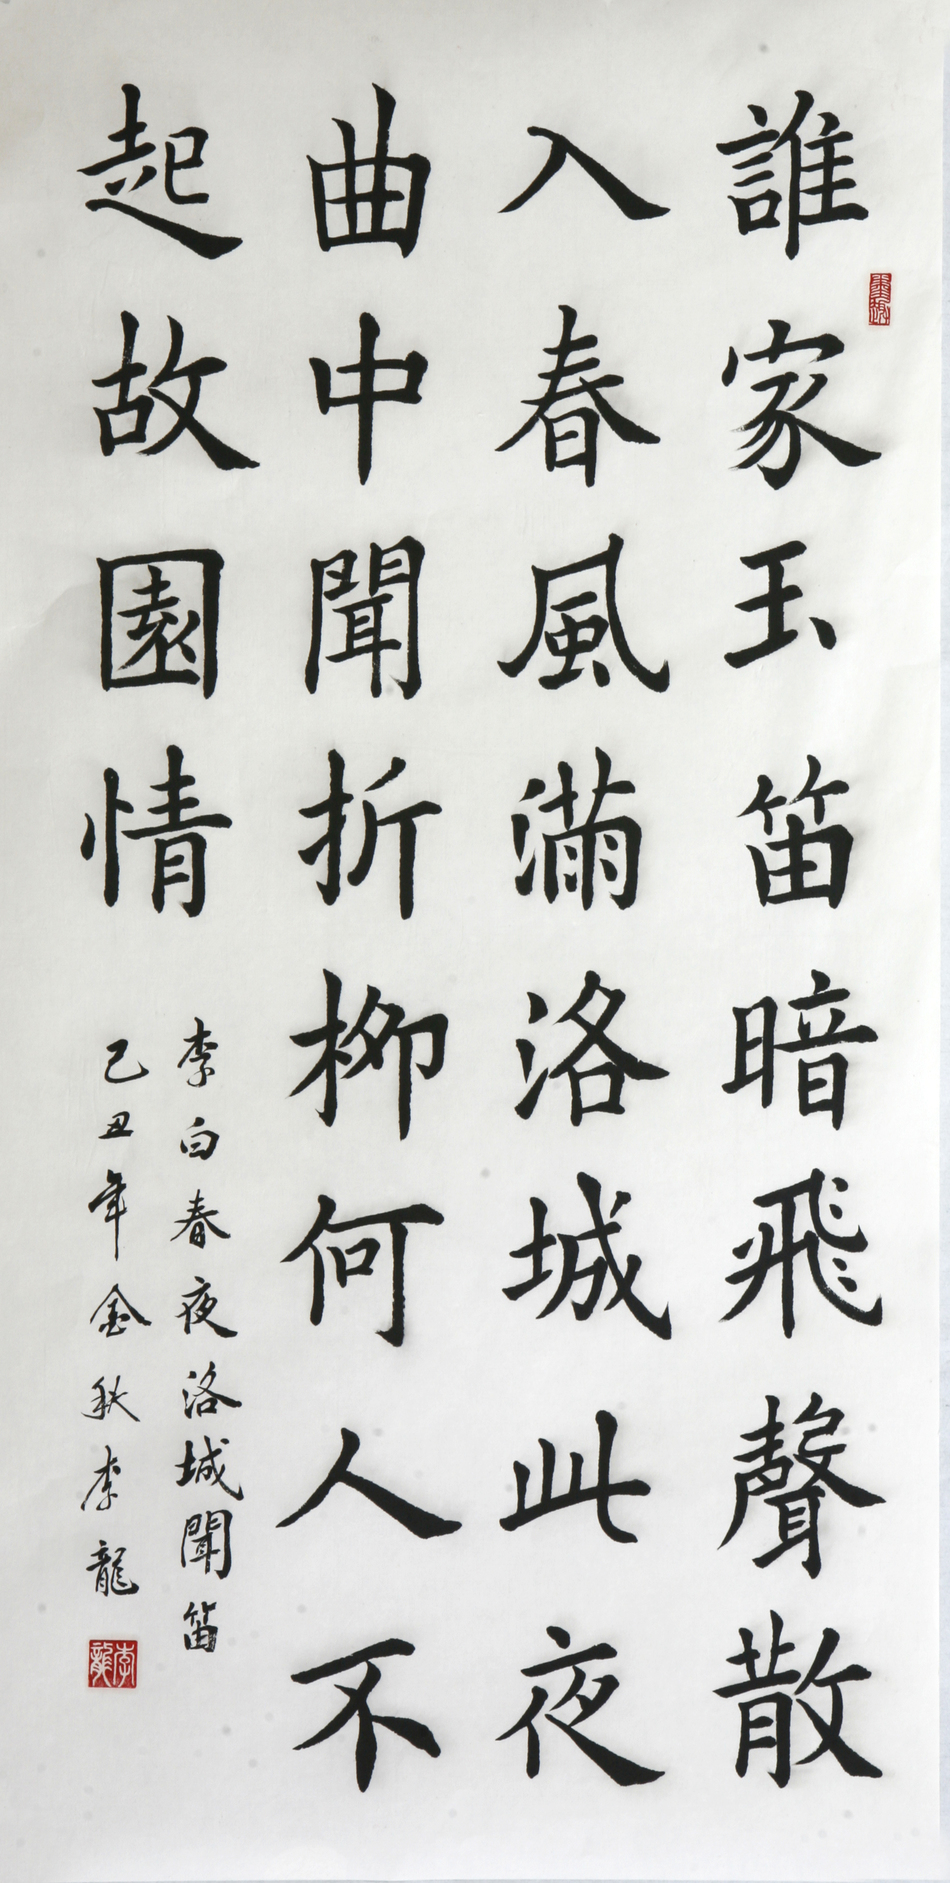 誰家玉笛暗飛聲散
入春風滿洛城此夜
曲中聞折柳何人不
起故園情
李白春夜洛城聞笛
己丑年金秋李龍
李龍